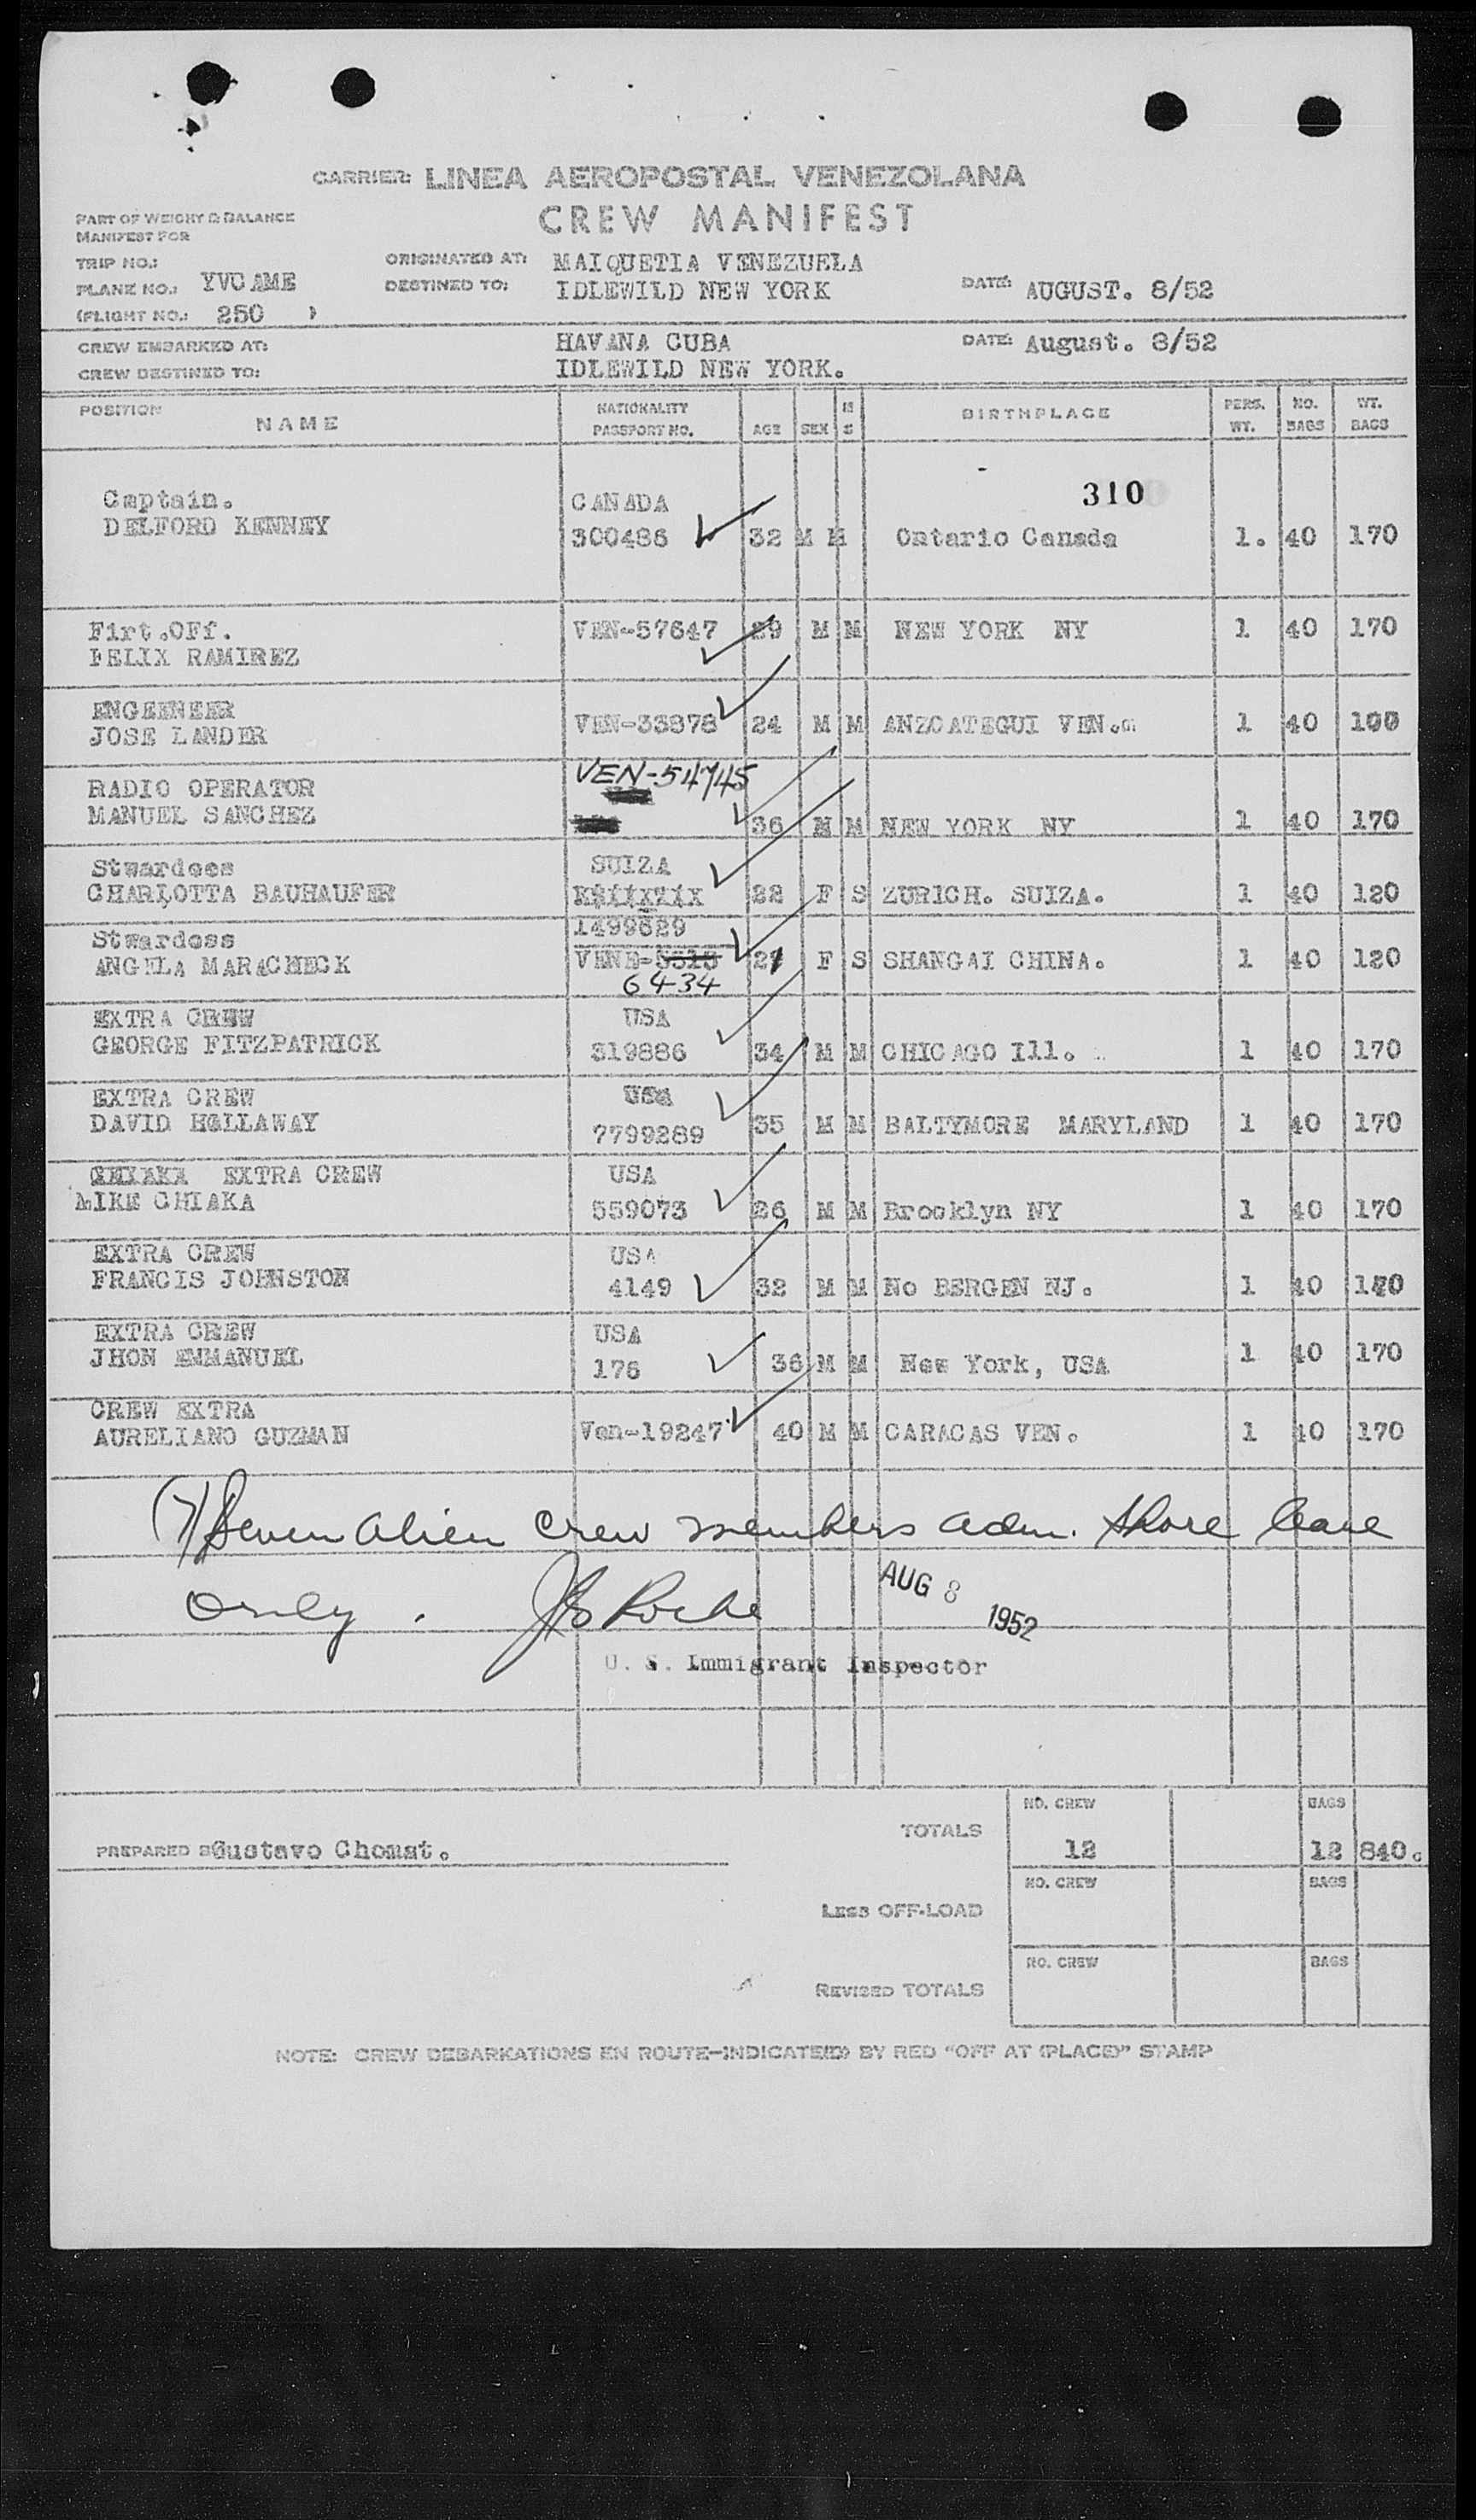 CARRIER: LINEA AEROPOSTAL VENEZOLANA
CREW MANIFEST
PART OF WEIGHT & BALANCE
MANIFEST FOR
TRIP NO.:
ORIGINATED AT: MAIQUETIA VENEZUELA
PLANE NO.: YVCAME
DESTINED TO: IDLEWILD NEW YORK DATE: AUGUST. 8/52
(FLIGHT NO.: 250 )
CREW EMBARKED AT: HAVANA CUBA DATE: August. 8/52
CREW DESTINED TO: IDLEWILD NEW YORK.
POSITION NAME NATIONALITY PASSPORT NO. AGE SEX M S BIRTHPLACE PERS. WT. NO. BAGS WT. BAGS
310
Captain. CANADA
DELFORD KENNEY 300486 32 M M Ontario Canada 1. 40 170
Firt.OFf. VEN-57647 29 M M NEW YORK NY 1 40 170
FELIX RAMIREZ
ENGEENEER
JOSE LANDER VEN-33878 24 M M ANZOATEGUI VEN. 1 40
RADIO OPERATOR VEN-54745
MANUEL SANCHEZ 36 M M NEW YORK NY 1 40 170
Stwardees SUIZA
CHARLOTTA BAUHAUFER 22 F S ZURICH. SUIZA. 1 40 120
1499629
Stwardess
ANGELA MARACHECK VENE-5515 21 F S SHANGAI CHINA. 1 40 120
6434
EXTRA CREW USA
GEORGE FITZPATRICK 319886 34 M M CHICAGO Ill. 1 40 170
EXTRA CREW USA
DAVID HOLLAWAY 7799289 35 M M BALTYMORE MARYLAND 1 40 170
CHIAKA EXTRA CREW USA
MIKE CHIAKA 559073 26 M M Brooklyn NY 1 40 170
EXTRA CREW USA
FRANCIS JOHNSTON 4149 32 M M No BERGEN NJ. 1 40
EXTRA CREW USA
JHON EMMANUEL 176 36 M M New York, USA 1 40 170
CREW EXTRA
AURELIANO GUZMAN Ven-19247 40 M M CARACAS VEN. 1 40 170
(7) Seven alien crew members adm. shore leave
only. JB Roche AUG 8 1952
U. S. Immigrant Inspector
TOTALS NO. CREW 12 BAGS 12 840.
PREPARED BY Gustavo Chomat.
LESS OFF-LOAD NO. CREW BAGS
REVISED TOTALS NO. CREW BAGS
NOTE: CREW DEBARKATIONS EN ROUTE—INDICATE(D) BY RED "OFF AT (PLACE)" STAMP